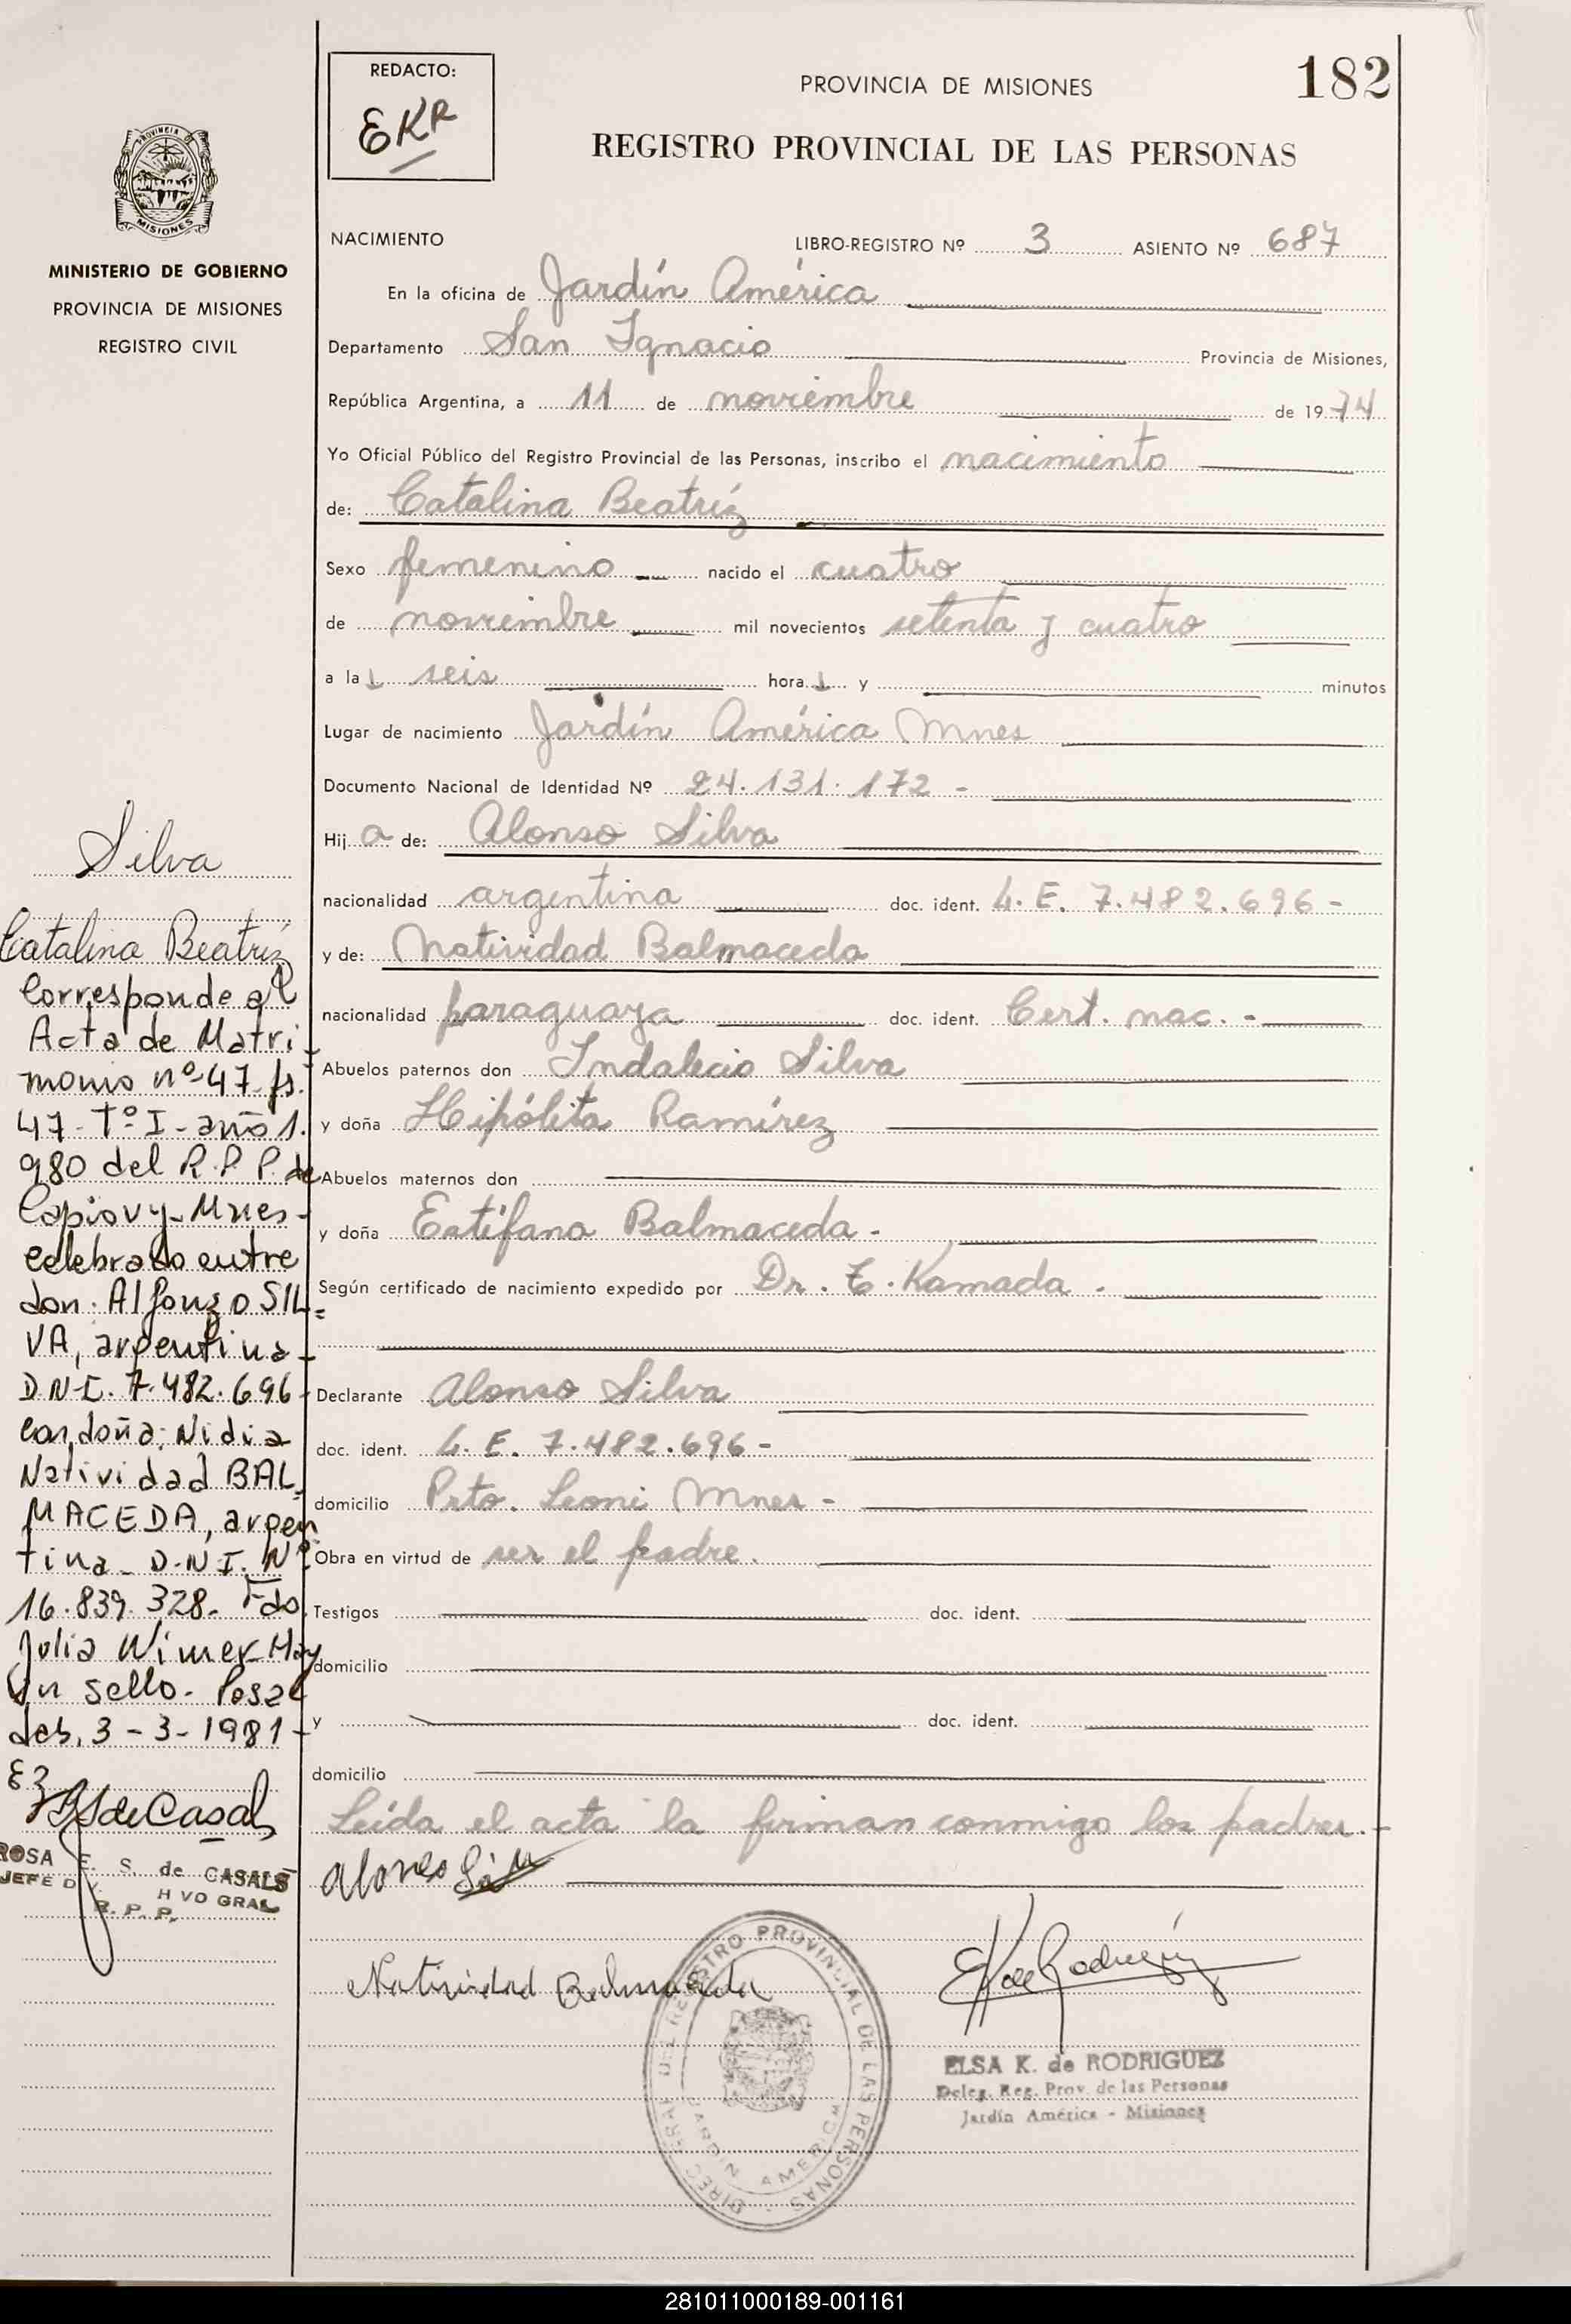 182
REDACTO:
EKR
PROVINCIA DE MISIONES
REGISTRO PROVINCIAL DE LAS PERSONAS
PROVINCIA DE
MISIONES
MINISTERIO DE GOBIERNO
PROVINCIA DE MISIONES
REGISTRO CIVIL
NACIMIENTO LIBRO-REGISTRO Nº 3 ASIENTO Nº 687
En la oficina de Jardín América
Departamento San Ignacio Provincia de Misiones,
República Argentina, a 11 de noviembre de 1974
Yo Oficial Público del Registro Provincial de las Personas, inscribo el nacimiento
de: Catalina Beatríz
Sexo femenino nacido el cuatro
de noviembre mil novecientos setenta y cuatro
a las seis horas y minutos
Lugar de nacimiento Jardín América Mnes
Documento Nacional de Identidad Nº 24.131.172 -
Hija de: Alonso Silva
nacionalidad argentina doc. ident. L. E. 7.482.696 -
y de: Natividad Balmaceda
nacionalidad paraguaya doc. ident. Cert. nac. -
Abuelos paternos don Indalecio Silva
y doña Hipólita Ramírez
Abuelos maternos don
y doña Estífana Balmaceda -
Según certificado de nacimiento expedido por Dr. T. Kamada -
Declarante Alonso Silva
doc. ident. L. E. 7.482.696 -
domicilio Prto. Leoni Mnes -
Obra en virtud de ser el padre.
Testigos doc. ident.
domicilio
y doc. ident.
domicilio
Leída el acta la firman conmigo los padres. -
Alonso Silva
Natividad Balmaceda
DIREC. GRAL. DEL REGISTRO PROVINCIAL DE LAS PERSONAS
JARDIN AMERICA
EK de Rodriguez
ELSA K. de RODRIGUEZ
Deleg. Reg. Prov. de las Personas
Jardín América - Misiones
Silva
Catalina Beatríz
Corresponde al
Acta de Matri-
monio nº 47 fs.
47 - Tº I - año 1.
980 del R.P.P. de
Capiovy - Mnes -
celebrado entre
don. Alfonzo SIL=
VA, argentina -
D.N.I. 7.482.696 -
con doña: Nidia
Natividad BAL=
MACEDA, argen
tina - D.N.I. Nº
16.839.328. Fdo.
Julia Wimer Hay
un sello. Posa
das, 3 - 3 - 1981 -
RS de Casals
ROSA E. S. de CASALS
JEFE DIV. H VO GRAL
R. P. P.
281011000189-001161